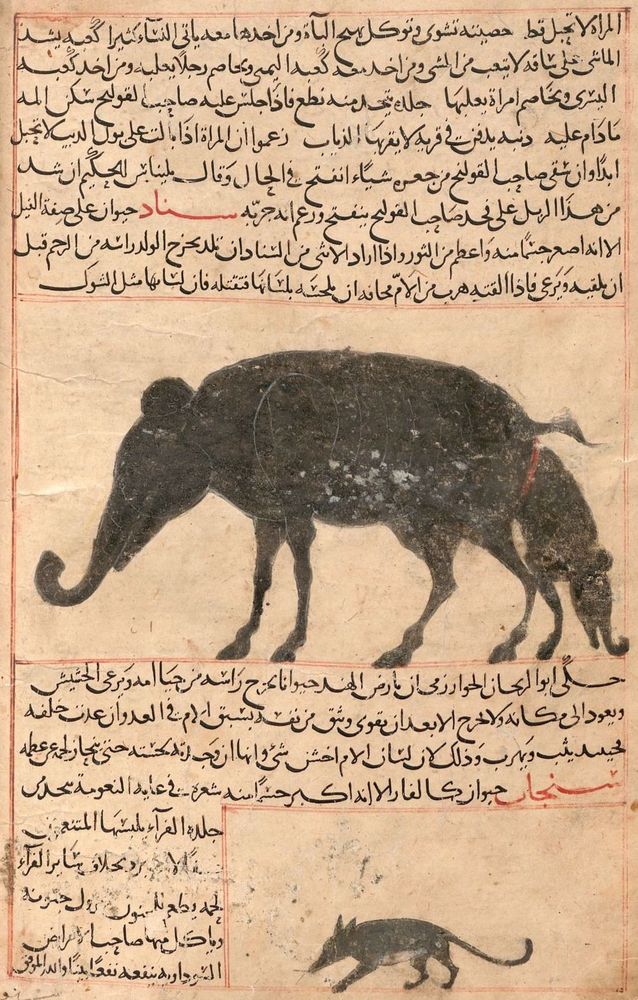 المراة لا تحبل قط خصيته تشوى وتوكل يهيج الباة ومن اخدها معه ياتي النساء كثيرا كعبه يشد
الماشي على ساقه لا يتعب من المشي ومن اخد معه كعبه اليمنى وخاصم رجلا يغلبه ومن اخد كعبه
اليسرى وخاصم امراة يغلبها جلده يتخد منه نطع فاذا جلس عليه صاحب القولنج سكن المه
ما دام عليه دنبه يدفن في قرية لا يقربها الذباب زعموا ان المراة اذا بالت على بول الديب لا تحبل
ابدا وان سقى صاحب القولنج من جعره شياء انفتح في الحال وقال بليناس الحكيم ان شد
من هذا الزبل على فخد صاحب القولنج ينفتح وزعم انه جربه سناد حيوان على صفة الفيل
الا انه اصغر جثما منه واعظم من الثور واذا اراد الانثى من السناد ان تلد يخرج الولد راسه من الرحم قبل
ان يلقيه ويرعى فاذا القته هرب من الام مخافة ان يلحسه بلسانها فتقتله فان لسانها مثل الشوك
حكى ابو الريحان الخوارزمي ان بارض الهند حيوانا يخرج راسه من حيا امه ويرعى الحشيش
ويعود الى مكانه ولا يخرج الا بعد ان يقوى ويثق من نفسه بسبق الام في العدو ان عدت خلفه
فحينيد يثب ويهرب وذلك لان لسان الام اخشن شئ وانها ان وجدته لحسته حتى تنجاز لحمه عن عظمه
سنجاب حيوان كالفار الا انه اكبر جثما منه شعره في غاية النعومة يتخد من
جلده الفراء يلبسها المتنعمون
سائر الفراء
لحمه يطعم جنونه
وياكل منها صاحب الامراض
السوداوية ينفعه نفعا بينا والله الموفق